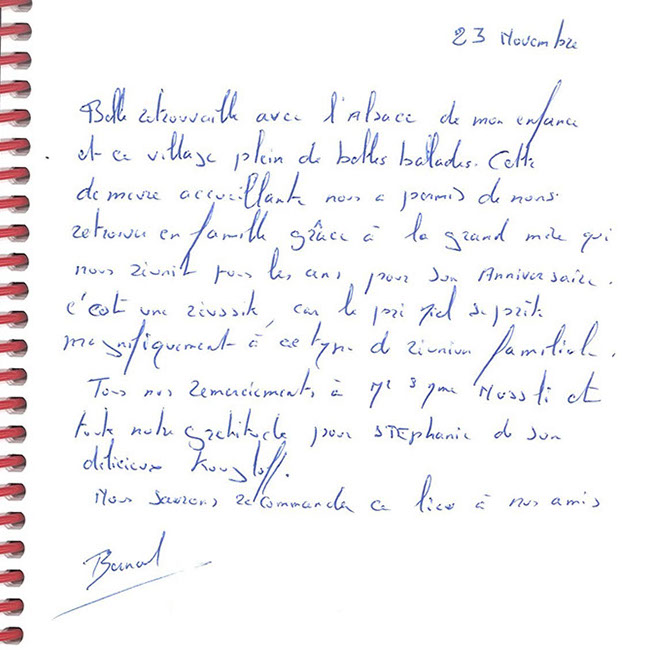 23 Novembre
Belle retrouvaille avec l'Alsace de mon enfance
et ce village plein de belles ballades. Cette
demeure accueillante nous a permis de nous
retrouver en famille grâce à la grand mère qui
nous réunit tous les ans pour son Anniversaire.
c'est une réussite, car le se prête
magnifiquement à ce type de réunion familiale.
Tous nos remerciements à Mr & Mme et
toute notre gratitude pour STEphanie et son
délicieux Kougloff.
Nous saurons recommander ce lieu à nos amis